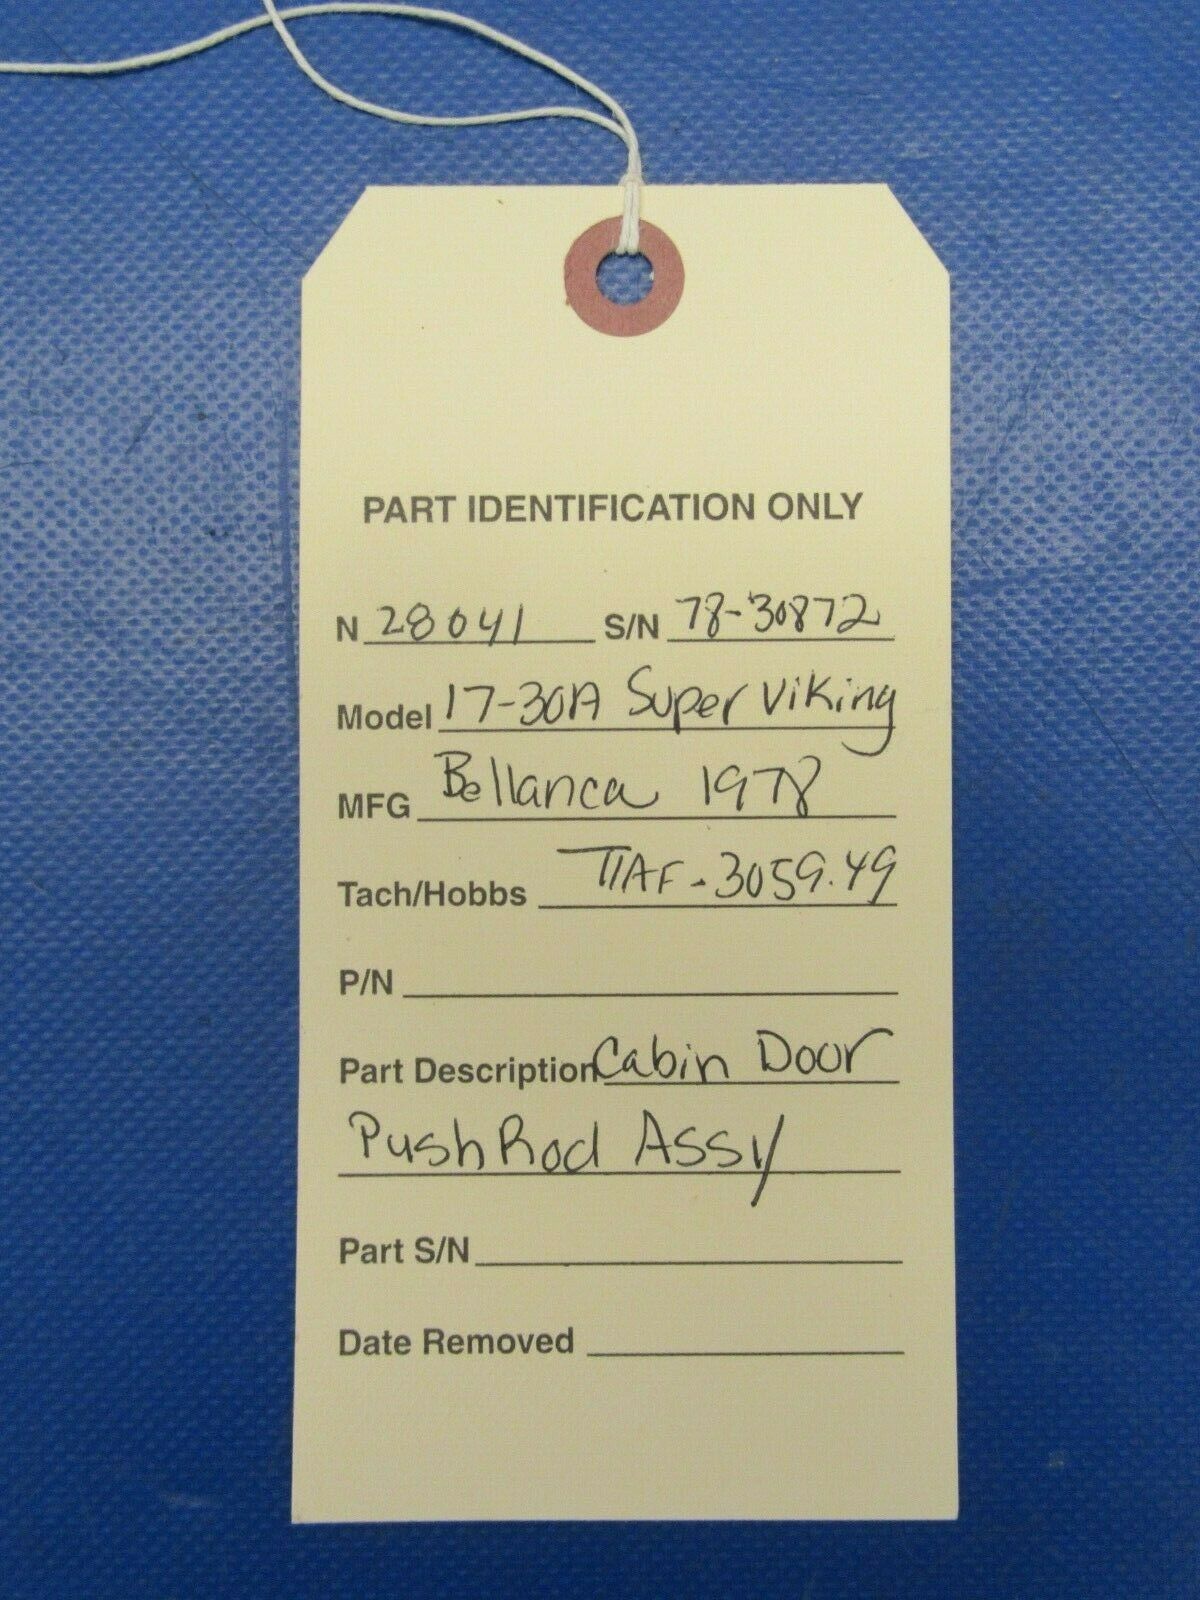 PART IDENTIFICATION ONLY
N 28041 S/N 78-30872
Model 17-30A Super Viking
MFG Bellanca 1978
Tach/Hobbs TTAF - 3059.49
P/N
Part Description Cabin Door
Push Rod Assy
Part S/N
Date Removed